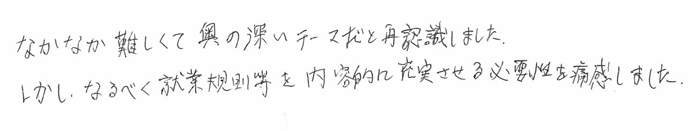 なかなか難しくて奥の深いテーマだと再認識しました.
しかし、なるべく就業規則等を内容的に充実させる必要性を痛感しました.